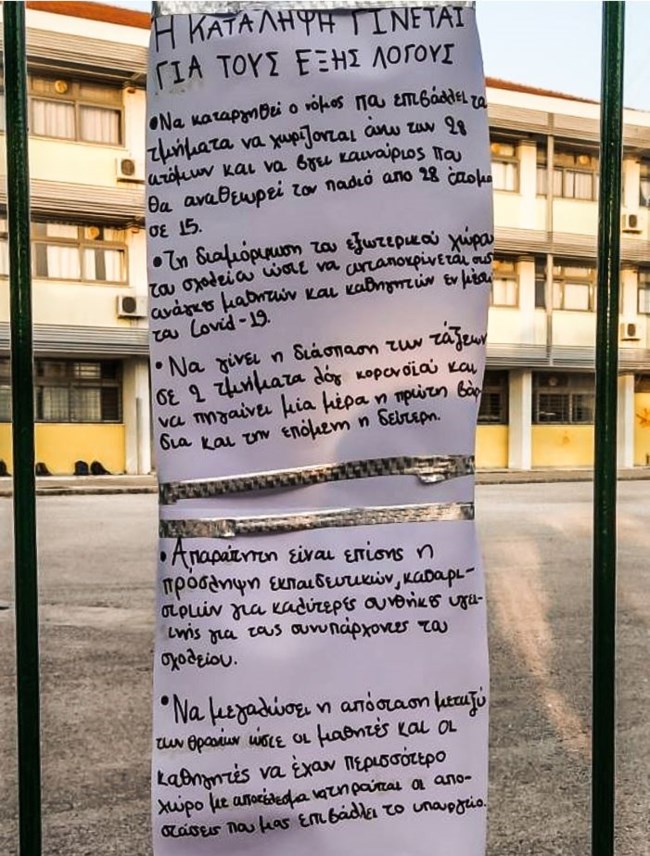 Η ΚΑΤΑΛΗΨΗ ΓΙΝΕΤΑΙ
ΓΙΑ ΤΟΥΣ ΕΞΗΣ ΛΟΓΟΥΣ
•Να καταργηθεί ο νόμος που επιβάλλει τα
τμήματα να χωρίζονται άνω των 28
ατόμων και να βγει καινούριος που
θα αναθεωρεί τον παλιό απο 28 άτομα
σε 15.
•Τη διαμόρφωση του εξωτερικού χώρου
του σχολείου ώστε να ανταποκρίνεται στις
ανάγκες μαθητών και καθηγητών εν μέσω
του Covid-19.
• Να γίνει η διάσπαση των τάξεων
σε 2 τμήματα λόγ κορονοϊού και
να πηγαίνει μία μέρα η πρώτη βάρ
δια και την επόμενη η δεύτερη.
•Απαραίτητη είναι επίσης η
πρόσληψη εκπαιδευτικών, καθαρι-
στριών για καλύτερες συνθήκες υγιει-
ινής για τους συνυπάρχοντες του
σχολείου.
•Να μεγαλώσει η απόσταση μεταξύ
των θρανίων ώστε οι μαθητές και οι
καθηγητές να έχουν περισσότερο
χώρο με αποτέλεσμα να τηρούνται οι απο-
στάσεις που μας επιβάλλει το υπουργείο.